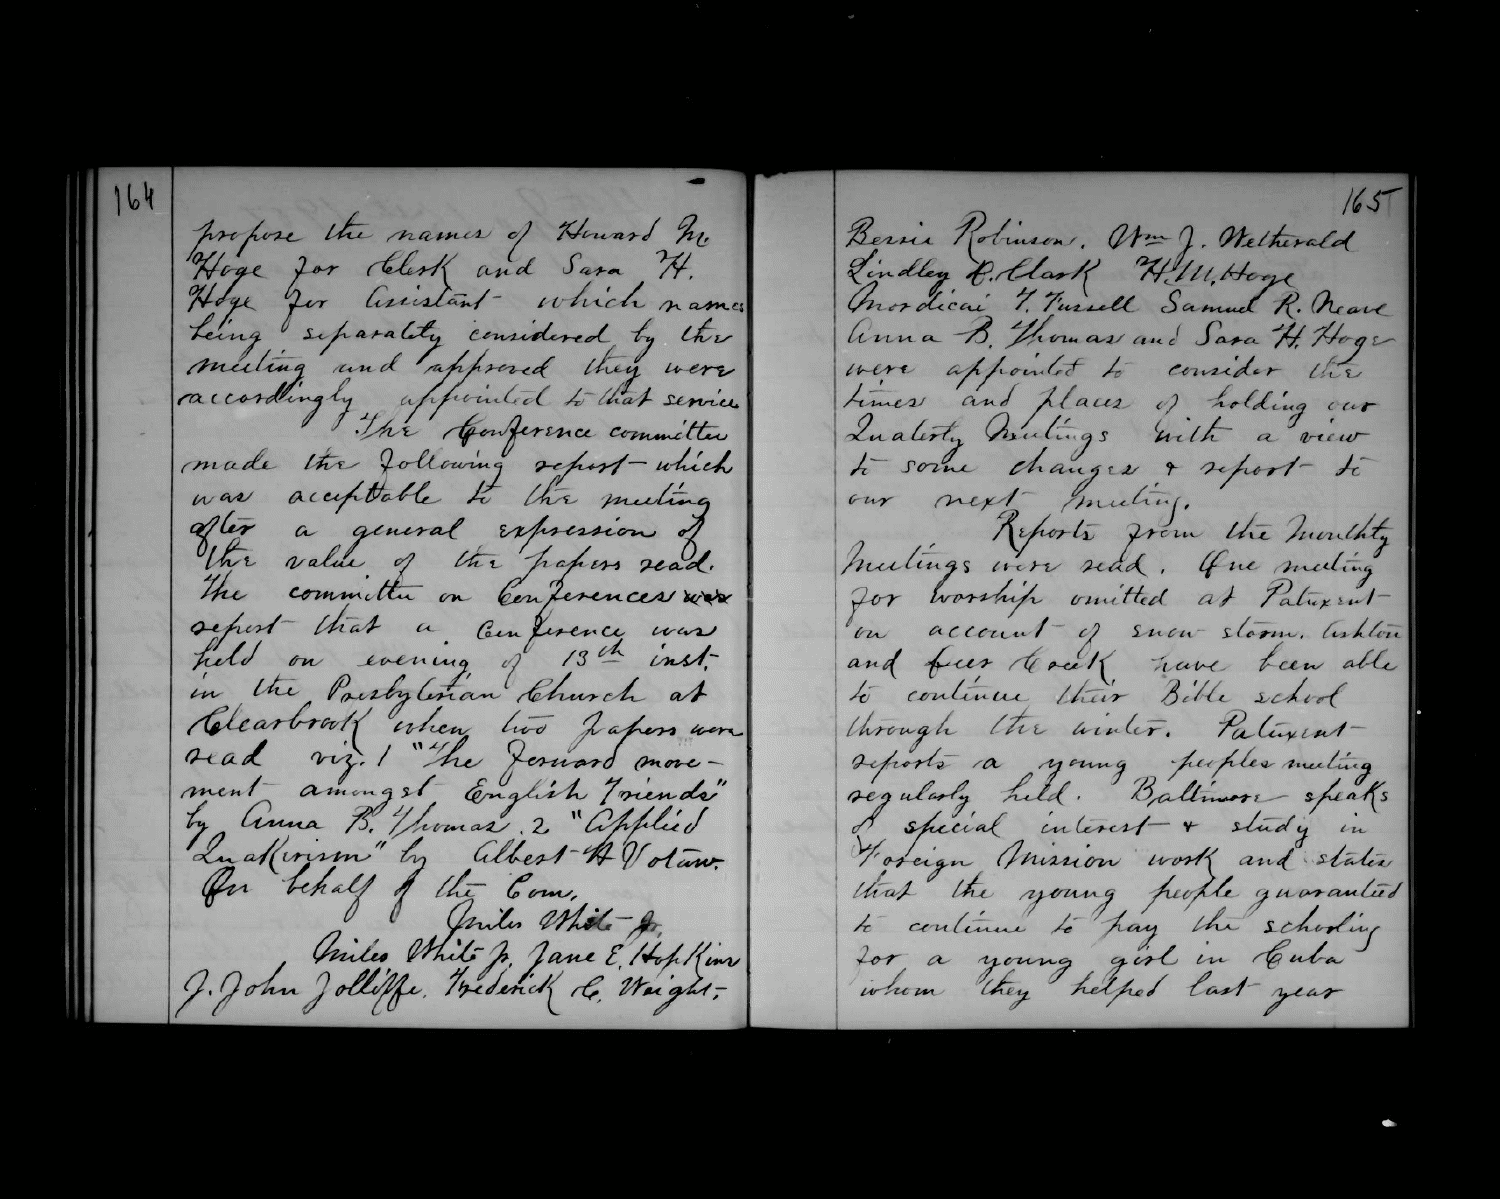 164
propose the names of Howard M.
Hoge for Clerk and Sara H.
Hoge for Assistant which names
being separately considered by the
meeting and approved they were
accordingly appointed to that service
The Conference committee
made the following report which
was acceptable to the meeting
after a general expression of
the value of the papers read.
The committee on Conferences was
report that a Conference was
held on evening of 13th inst.
in the Presbyterian Church at
Clearbrook when two papers were
read viz. 1 "The Forward move-
ment amongst English Friends"
by Anna B. Thomas. 2 "Applied
Quakerism" by Albert H Votaw.
On behalf of the Com,
Miles White Jr.
Miles White Jr. Jane E. Hopkins
J. John Jolliffe. Frederick C. Weight.
165
Bessie Robinson. Wm J. Wetherald
Lindley D. Clark H.M. Hoge
Mordicai T. Fussell Samuel R. Neave
Anna B. Thomas and Sara H. Hoge
were appointed to consider the
times and places of holding our
Quaterly Meetings with a view
to some changes & report to
our next meeting.
Reports from the Monthly
Meetings were read. One meeting
for worship omitted at Patuxent
on account of snow storm. Ashton
and Deer Creek have been able
to continue their Bible school
through the winter. Patuxent
reports a young peoples meeting
regularly held. Baltimore speaks
of special interest & study in
Foreign Mission work and states
that the young people guaranteed
to continue to pay the schooling
for a young girl in Cuba
whom they helped last year